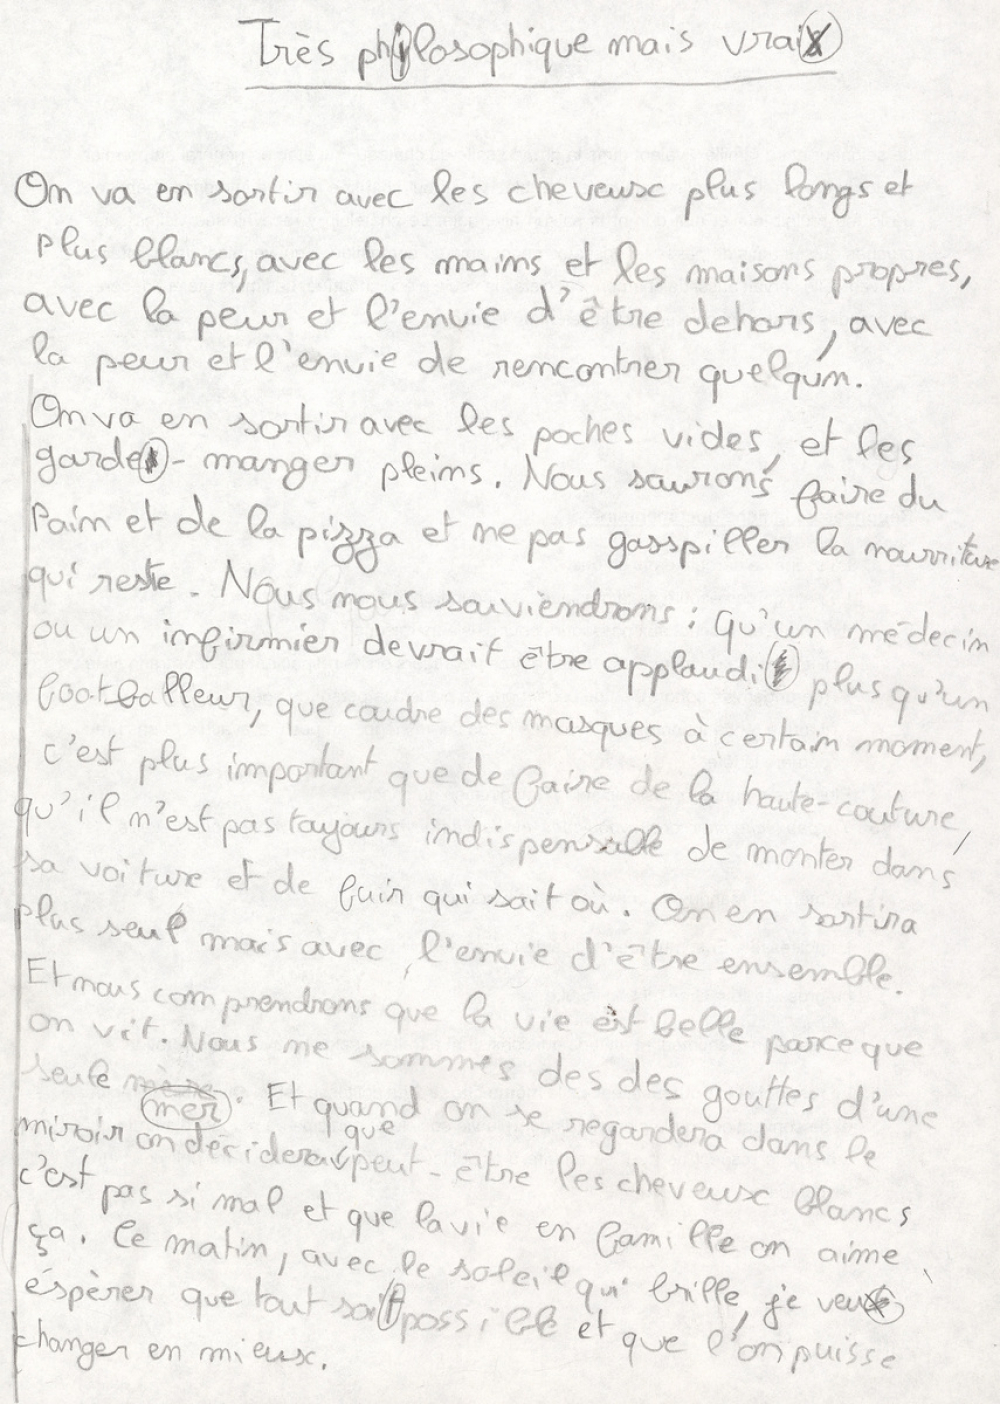 Très philosophique mais vrai
On va en sortir avec les cheveux plus longs et
plus blancs, avec les mains et les maisons propres,
avec la peur et l'envie d'être dehors, avec
la peur et l'envie de rencontrer quelqun.
On va en sortir avec les poches vides, et les
garde-manger pleins. Nous saurons faire du
Pain et de la pizza et ne pas gasspiller la nourriture
qui reste. Nous nous souviendrons : qu'un médecin
ou un infirmier devrait être applaudi plus qu'un
footballeur, que coudre des masques à certain moment,
c'est plus important que de faire de la haute-couture,
qu'il n'est pas toujours indispensable de monter dans
sa voiture et de fuir qui sait où. On en sortira
plus seul mais avec l'envie d'être ensemble.
Et nous comprendrons que la vie est belle parce que
on vit. Nous ne sommes des des gouttes d'une
seule mer. Et quand on se regardera dans le
miroir on décidera que peut-être les cheveux blancs
c'est pas si mal et que la vie en famille on aime
ça. Ce matin, avec le soleil qui brille, je veux
éspèrer que tout soit possible et que l'on puisse
changer en mieux.